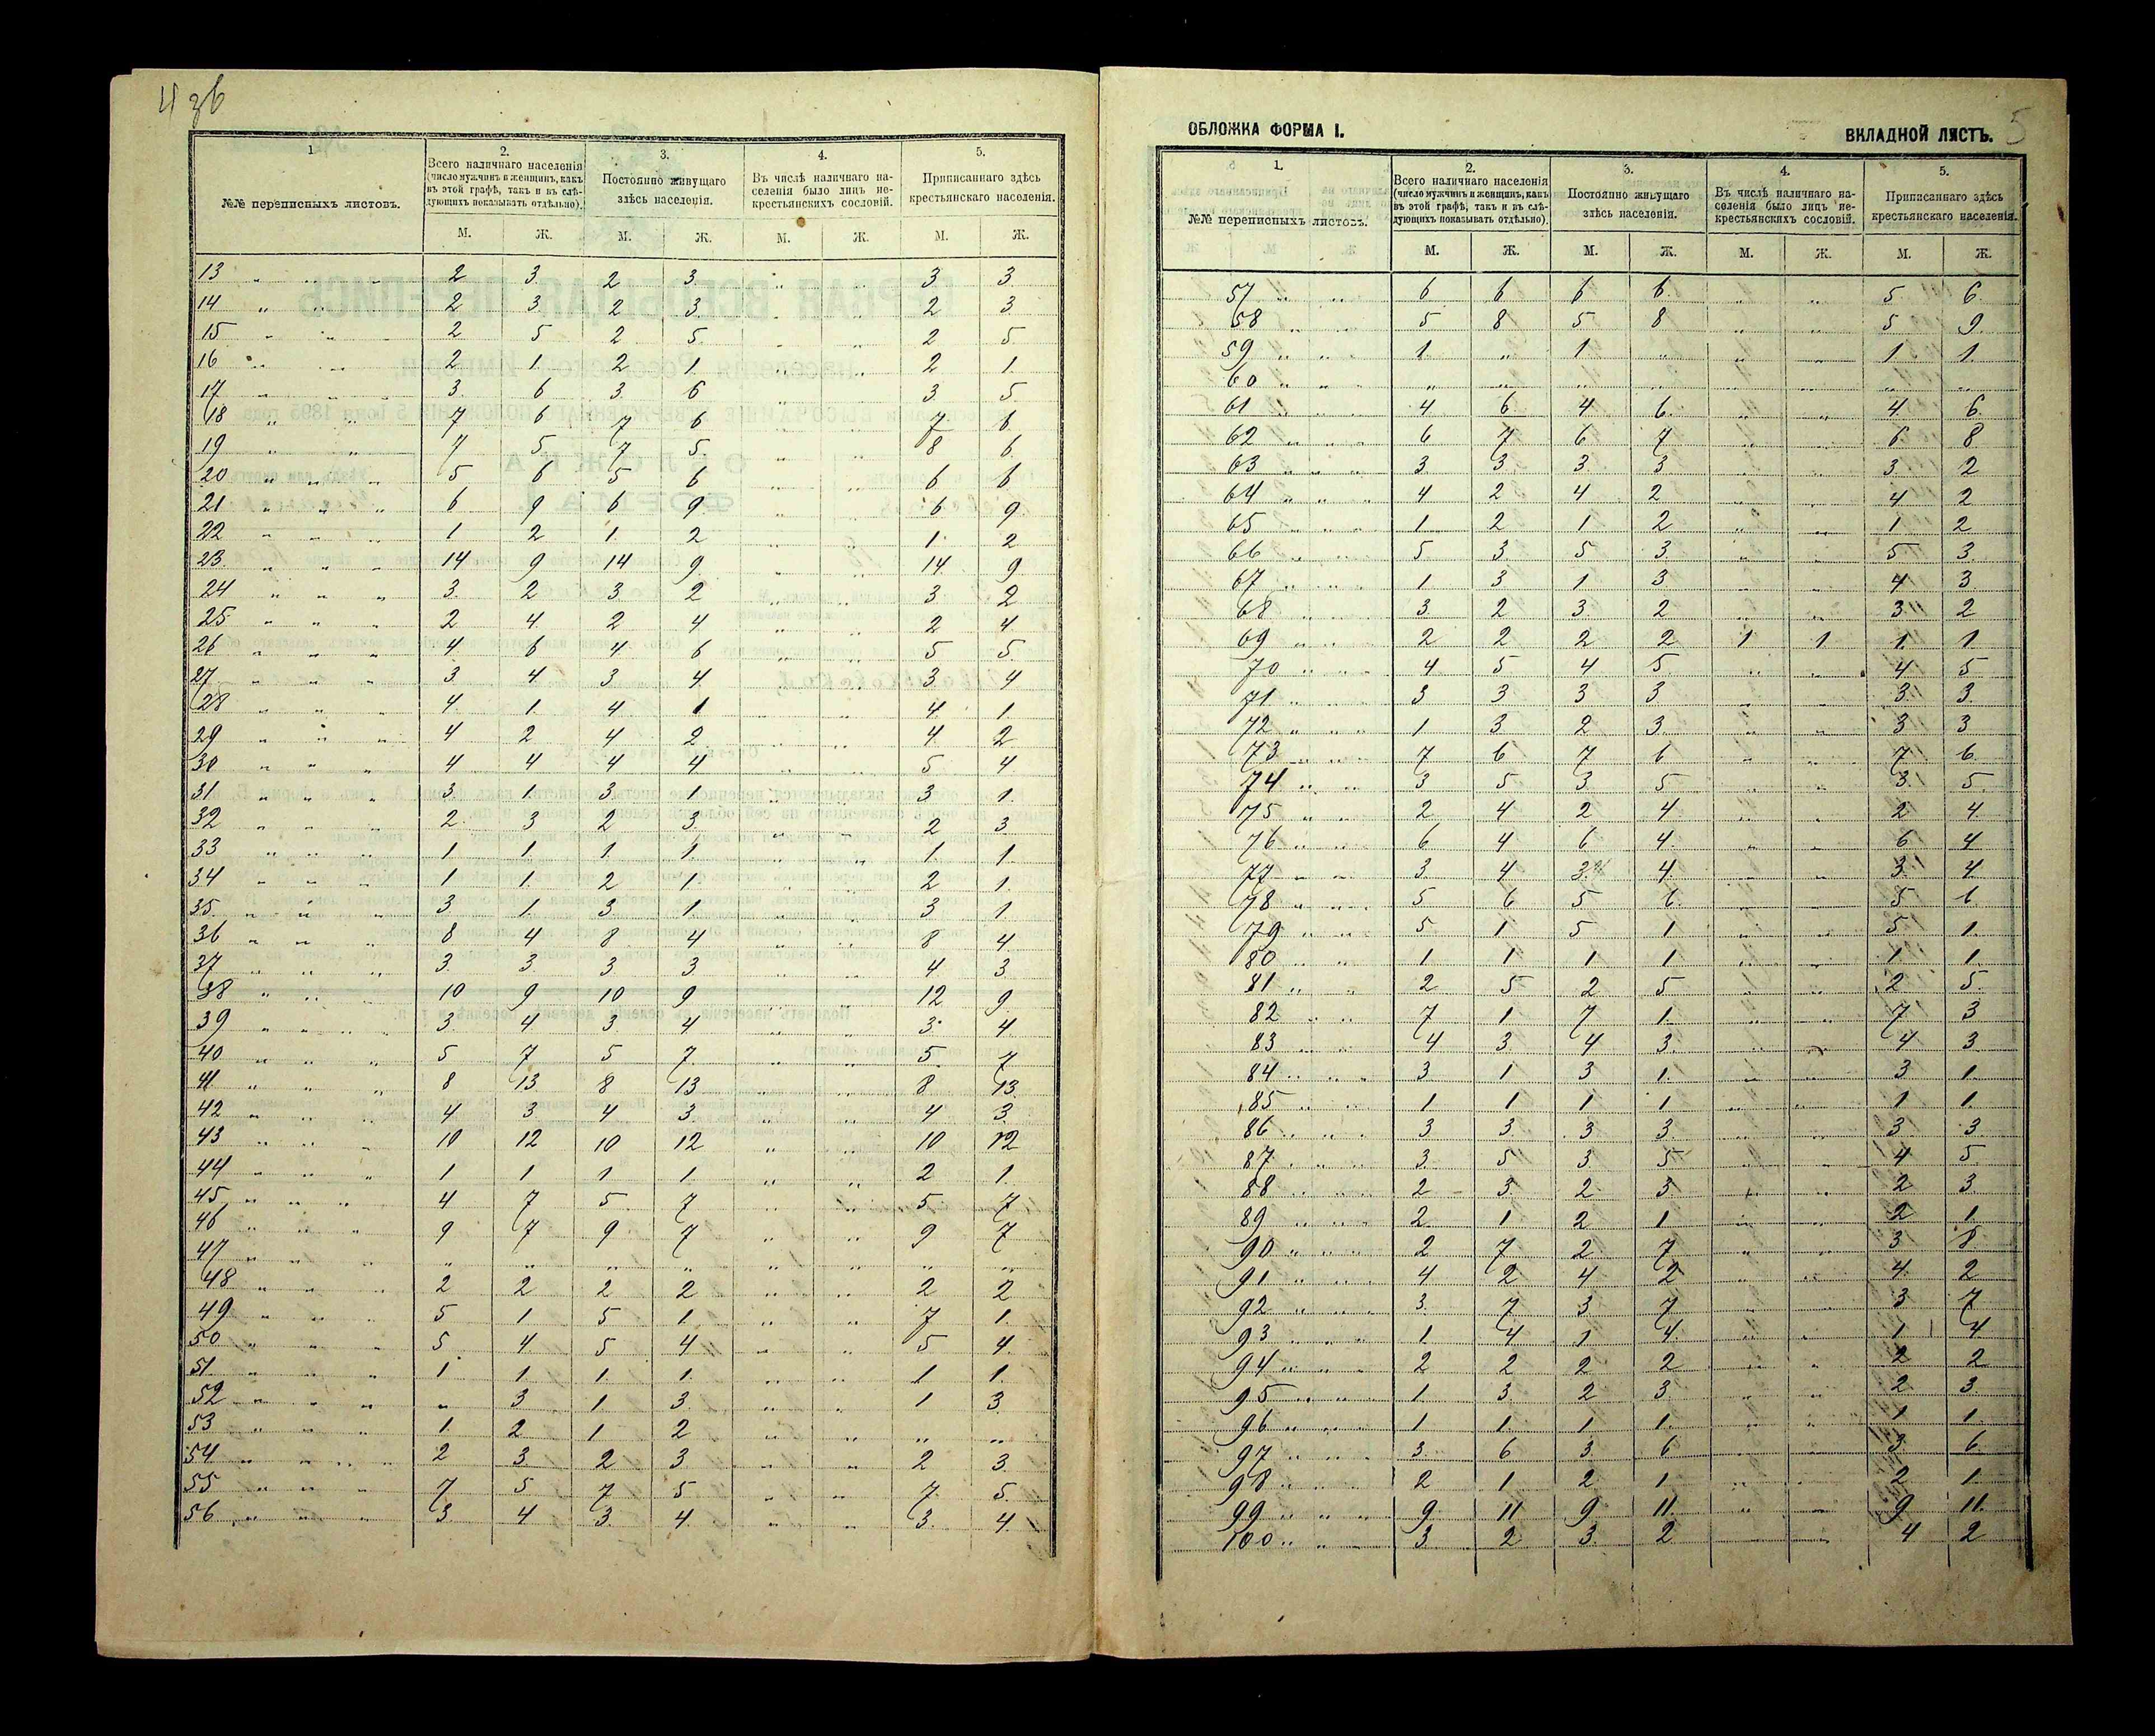 4 зб
1
2.
3.
4.
5.
№№ переписныхъ листовъ.
Всего наличнаго населенія (число мужчинъ и женщинъ, какъ въ этой графѣ, такъ и въ слѣдующихъ показывать отдѣльно).
Постоянно живущаго здѣсь населенія.
Въ числѣ наличнаго населенія было лицъ не-крестьянскихъ сословій.
Приписаннаго здѣсь крестьянскаго населенія.
М. Ж. М. Ж. М. Ж. М. Ж.
13 " " " 2 3 2 3 " " 3 3
14 " " " 2 3 2 3 " " 2 3
15 " " " 2 5 2 5 " " 2 5
16 " " " 2 1 2 1 " " 2 1
17 " " " 3 6 3 6 " " 3 5
18 " " 7 6 7 6 " " 7 6
19 " " " 7 5 7 5 " " 8 6
20 " " " 5 6 5 6 " " 6 6
21 " " " 6 9 6 9 " " 6 9
22 " " " 1 2 1 2 " " 1 2
23 " " " 14 9 14 9 " " 14 9
24 " " " 3 2 3 2 " " 3 2
25 " " " 2 4 2 4 " " 2 4
26 " " " 4 6 4 6 " " 5 5
27 " " " 3 4 3 4 " " 3 4
28 " " " 4 1 4 1 " " 4 1
29 " " " 4 2 4 2 " " 4 2
30 " " " 4 4 4 4 " " 5 4
31 " " " 3 1 3 1 " " 3 1
32 " " " 2 3 2 3 " " 2 3
33 " " " 1 1 1 1 " " 1 1
34 " " " 1 1 2 1 " " 2 1
35 " " " 3 1 3 1 " " 3 1
36 " " " 8 4 8 4 " " 8 4
37 " " " 3 3 3 3 " " 4 3
38 " " " 10 9 10 9 " " 12 9
39 " " " 3 4 3 4 " " 3 4
40 " " " 5 7 5 7 " " 5 7
41 " " " 8 13 8 13 " " 8 13
42 " " " 4 3 4 3 " " 4 3
43 " " " 10 12 10 12 " " 10 12
44 " " " 1 1 1 1 " " 2 1
45 " " " 4 7 5 7 " " 5 7
46 " " " 9 7 9 7 " " 9 7
47 " " " " " " " " " " "
48 " " " 2 2 2 2 " " 2 2
49 " " " 5 1 5 1 " " 7 1
50 " " " 5 4 5 4 " " 5 4
51 " " " 1 1 1 1 " " 1 1
52 " " " " 3 1 3 " " 1 3
53 " " " 1 2 1 2 " " " "
54 " " " 2 3 2 3 " " 2 3
55 " " " 7 5 7 5 " " 7 5
56 " " " 3 4 3 4 " " 3 4
ОБЛОЖКА ФОРМА I.
ВКЛАДНОЙ ЛИСТЪ.
5
1.
2.
3.
4.
5.
№№ переписныхъ листовъ.
Всего наличнаго населенія (число мужчинъ и женщинъ, какъ въ этой графѣ, такъ и въ слѣдующихъ показывать отдѣльно).
Постоянно живущаго здѣсь населенія.
Въ числѣ наличнаго населенія было лицъ не-крестьянскихъ сословій.
Приписаннаго здѣсь крестьянскаго населенія.
М. Ж. М. Ж. М. Ж. М. Ж.
57 " " 6 6 6 6 " " 5 6
58 " " 5 8 5 8 " " 5 9
59 " " 1 " 1 " " " 1 1
60 " " " " " " " " " "
61 " " 4 6 4 6 " " 4 6
62 " " 6 7 6 7 " " 6 8
63 " " " 3 3 3 3 " " 3 2
64 " " " 4 2 4 2 " " 4 2
65 " " " 1 2 1 2 " " 1 2
66 " " " 5 3 5 3 " " 5 3
67 " " " 1 3 1 3 " " 4 3
68 " " " 3 2 3 2 " " 3 2
69 " " " 2 2 2 2 1 1 1 1
70 " " " 4 5 4 5 " " 4 5
71 " " " 3 3 3 3 " " 3 3
72 " " " 1 3 2 3 " " 3 3
73 " " 7 6 7 6 " " 7 6
74 " " 3 5 3 5 " " 3 5
75 " " " 2 4 2 4 " " 2 4
76 " " " 6 4 6 4 " " 6 4
77 " " 3 4 3 4 " " 3 4
78 " " 5 6 5 6 " " 5 6
79 " " " 5 1 5 1 " " 5 1
80 " " 1 1 1 1 " " 1 1
81 " " 2 5 2 5 " " 2 5
82 " " 7 1 7 1 " " 7 3
83 " " 4 3 4 3 " " 4 3
84 " " " 3 1 3 1 " " 3 1
85 " " 1 1 1 1 " " 1 1
86 " " " 3 3 3 3 " " 3 3
87 " " " 3 5 3 5 " " 4 5
88 " " " 2 3 2 3 " " 2 3
89 " " " 2 1 2 1 " " 2 1
90 " " " 2 7 2 7 " " 3 8
91 " " " 4 2 4 2 " " 4 2
92 " " " 3 7 3 7 " " 3 7
93 " " " 1 4 1 4 " " 1 4
94 " " " 2 2 2 2 " " 2 2
95 " " " 1 3 2 3 " " 2 3
96 " " " 1 1 1 1 " " 1 1
97 " " " 3 6 3 6 " " 3 6
98 " " " 2 1 2 1 " " 2 1
99 " " " 9 11 9 11 " " 9 11
100 " " " 3 2 3 2 " " 4 2